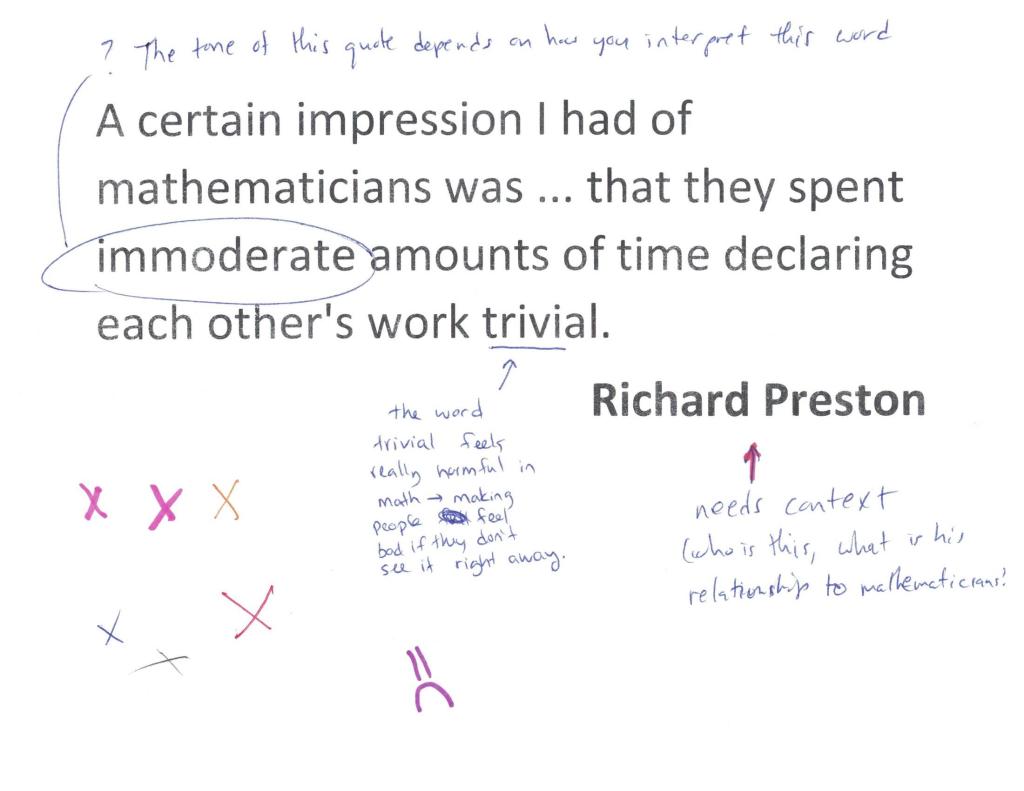 ? The tone of this quote depends on how you interpret this word
A certain impression I had of
mathematicians was ... that they spent
immoderate amounts of time declaring
each other's work trivial.
Richard Preston
the word
trivial feels
really harmful in
math → making
people feel
bad if they don't
see it right away.
needs context
(who is this, what is his
relationship to mathematicians?